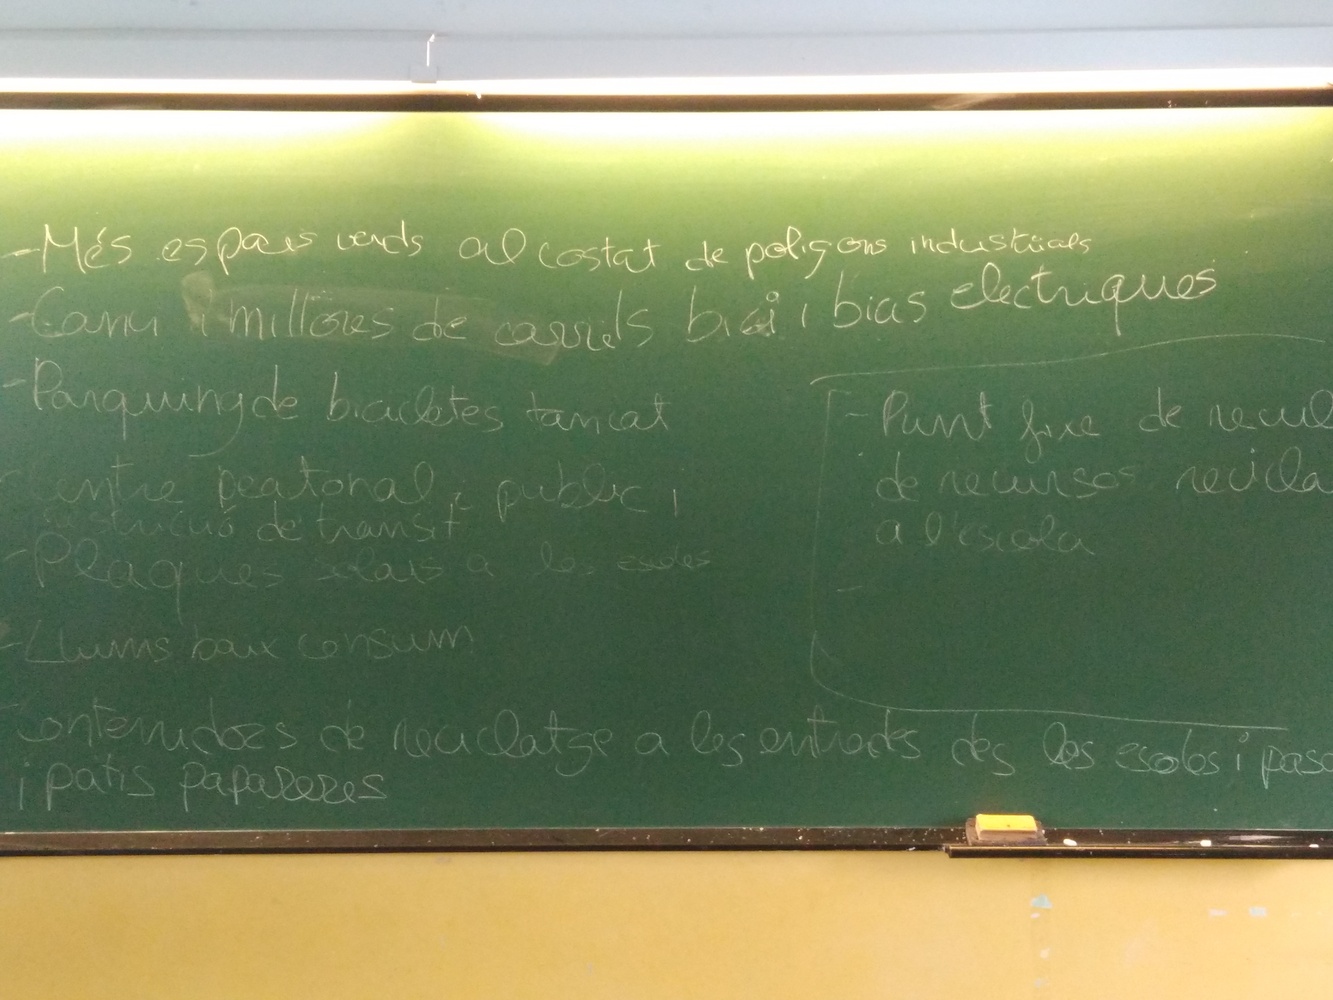 - Més espais verds al costat de poligons industrials
- Canvi i millores de carrils bici i bicis electriques
- Parquing de bicicletes tancat
centre peatonal, public i
de transit
- Plaques solars a les escoles
- Llums baix consum
- Contenidors de reciclatge a les entrades des les escoles i
i patis papareres
- Punt fixe de
de recursos
a l'escola
-